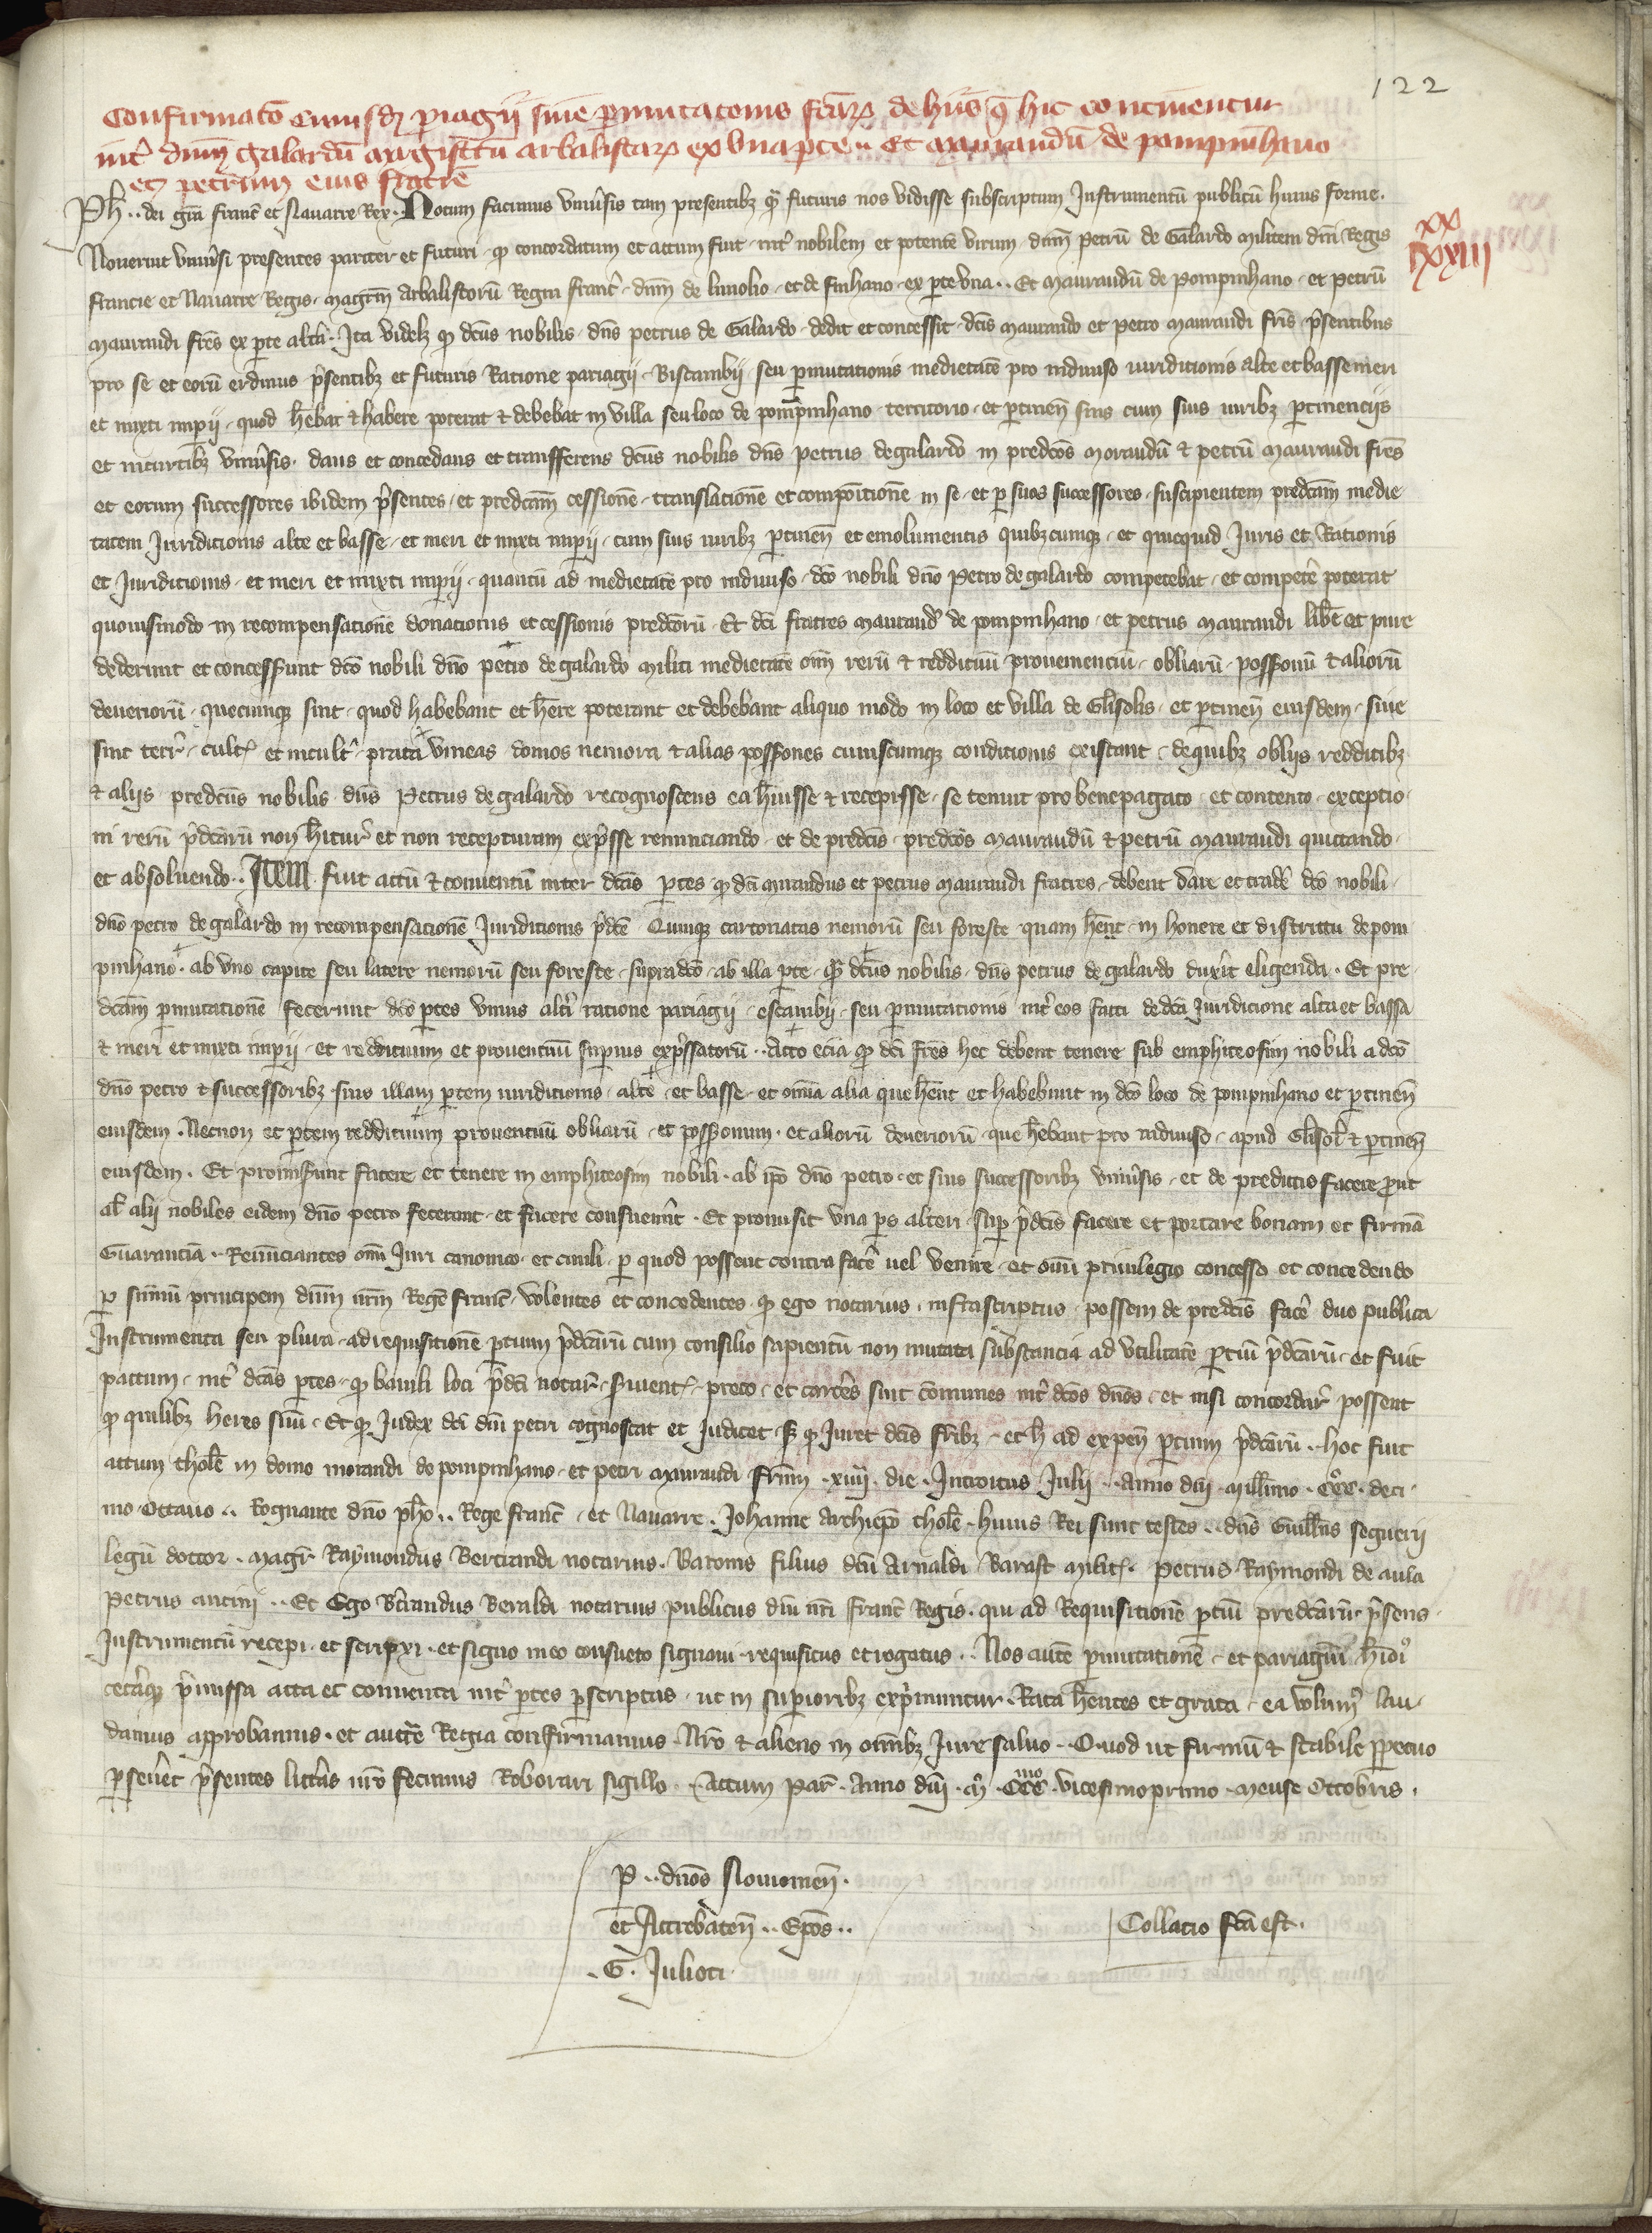 122
Confirmatō cuiusdꝫ pagii siue pmutacōnis fcāꝝ de hiis q̄ hic continentur
int᷑ dnm̄ Galardū magistrū arbalistaꝝ ex vna pte Et Maurandū de pompinhano
et petrum eius fratrē
xx
IIIIxxIII
Ph .. dei grā franc̄ et Nauarre Rex. Notum facimus vniūsis tam presentibꝫ q̄ futuris nos vidisse subscriptum Instrumentū publicū huius forme.
Nouerint vniūsi presentes pariter et futuri. ꝙ concordatum et actum fuit. int᷑ nobilem et potentē virum dnm̄ Petrū de Galardo militem dn̄i Regis
francie et Nauarre Regis. magrm̄ Arbalistorū Regni franc̄. dnm̄ de limolio. et de finhano. ex pte vna .. Et Maurandū de Pompinhano. et Petrū
maurandi frēs ex pte altā. Ita videlꝫ ꝙ dcūs nobilis dn̄s petrus de Galardo dedit et concessit dcīs maurando et petro maurandi frīs p̄sentibus
pro se et eorū erdinus p̄sentibꝫ et futuris Ratione pariagij. Biscambij. seu pmutationis medietatē pro indiuiso iuriditionis alte et basse meri
et mixti impij. quod hēbat et habere poterat et debebat in villa seu loco de pompinhano territorio. et ptinen̄ suis cum suis iuribꝫ ptinenciis
et incurtibꝫ vniūsis. dans et concedans et transfferens dcūs nobilis dn̄s petrus de galardo in predcōs morandū et petrū maurandi frēs
et eorum successores ibidem p̄sentes. et predcām cessionē. translationē et compōitionē in se. et p suos successores. suscipientem predcām medie
tatem Iuriditionis alte et basse. et meri et mixti impij. cum suis iuribꝫ ptinen̄ et emolumentis quibꝫcunqꝫ. et quicquid Iuris et Rationis
et Iuriditionis. et meri et mixti impij. quantū ad medietatē pro indiuiso. dcō nobili dn̄o Petro de galardo competebat. et competē poterat
quouismodo in recompensationē donationis et cessionis predcōrū. Et dcī fratres maurand᷑ de pompinhano. et petrus maurandi lib̄e et pure
dederunt et concesserunt dcō nobili dn̄o petro de galardo militi medietatē om̄i rerū et reddituū prouenenciū. obliarū. possonū et aliorū
deueriorū. quecunqꝫ sint. quod habebant et hēre poterant et debebant aliquo modo in loco et villa de Glisolis. et ptinen̄ eiusdem. siue
sint terr̄. cult᷑ et incult᷑. prata vineas domos nemora et alias possones cuiuscunqꝫ conditionis existant. de quibꝫ obliis redditibꝫ
et aliis predcūs nobilis dn̄s Petrus de galardo recognoscens ea hūisse et recepisse. se tenuit pro benepagato. et contento. exceptio
ni rerū p̄dcārū non hitur᷑ et non recepturam exp̄sse renunciando. et de predcīs. predcōs maurandū et petrū maurandi quittando.
et absoluendo .. Item fuit actū et conuentū inter dcās ptes ꝙ dcī maurandus et petrus Maurandi fratres. debent dare et tradē dcō nobili.
dn̄o petro de galardo in recompensationē Iuriditionis p̄dcē Quinqꝫ cartonatas nemorū seu foreste quam hēnt. in honere et districtu de pom
pinhano. ab vno capite seu latere nemorū seu foreste. supradcō. ab illa pte. q̄ dcūs nobilis. dn̄s petrus de galardo duxīt eligenda. Et pre
dcām pmutationē fecerunt dcē ptes vnius alt᷑i ratione pariagij. escambij. seu pmutationis int᷑ eos facti de dcā Iuriditione alta et bassa
et meri et mixti impij. et reddituum et prouentuū supius exp̄ssatorū .. Acto eciā ꝙ dcī frēs hec debent tenere sub emphiteosim nobili a dcō
dn̄o petro et successoribꝫ suis illam ptem iuriditionis. alte. et basse. et omīa alia que hēnt et habebunt in dcō loco de pompinhano et ptinen̄
eiusdem. Necnon et ptem reddituum prouentuū obliarū. et possonum. et aliorū deueriorū. que hēbant pro indiuiso. apud Glisol᷑ et ptinen̄
eiusdem. Et promisunt facere et tenere in emphiteosim nobili. ab ip̄o dn̄o petro. et suis successoribꝫ vniūsis. et de predictis facere prout
al᷑ alij nobiles eidem dn̄o petro fecerunt. et facere consueuīt. Et promisit vna ps alteri. sup p̄dcīs facere et portare bonam et firmā
Guarantiā .. Renunciantes om̄i Iuri canonico et ciuili. p quod possent contra facē uel venire. et om̄i priuilegio concesso et concedendo
p summū principem dnm̄ nrm̄ Regē franc̄. volentes et concedentes. ꝙ ego notarius. infrascriptus. possem de predcīs facē duo publica
Instrumenta seu plura. ad requisitionē ptium p̄dcārū cum consilio sapientū non mutata substancia ad vtilitatē ptiū p̄dcārū. et fuit
pactum. int᷑ dcās ptes. ꝙ bauili loci p̄dcī notar᷑. siruent᷑. preco. et carcēs sint cōmunes int᷑ dcōs dn̄os. et nisi concordar᷑ possent
ꝙ quilibꝫ heres suū. Et ꝙ Iudex dcī dn̄i petri cognoscat et iudicet. sꝫ ꝙ iuret dcīs fr̄ibꝫ. et h̄ ad expen̄ ptium p̄dcārū .. hoc fuit
actum tholē in domo morandi de pompinhano. et petri maurandi frūm. xiiij. die. Introitus Julij .. Anno dn̄i millīmo. CCCo. deci
mo octauo .. Regnante dn̄o pho .. Rege franc̄. et Nauarre. Johanne Archiepō tholē. huius Rei sunt testes .. dn̄s Guill̄us seguerii
legū doctor. magr᷑ Raymondus Bertrandi notarius. Baronis filius dcū Arnaldi Barast milit᷑. Petrus Raymondi de aula
Petrus ancini .. Et Ego B᷑trandus Beraldi notarius publicus dn̄i nr̄i franc̄ Regis. qui ad Requisitionē ptiū predcārū p̄sens
Instrumentū recepi. et scripxi. et signo meo consueto signaui. requisitus et rogatus .. Nos autē pmutationē. et pariagiū hmōi
cetāqꝫ p̄missa acta et conuenta int᷑ ptes pscriptas. ut in supioribꝫ exp̄muntur. Rata hēntes et grata. ea volum᷒ lau
damus approbamus. et auctē Regia confirmamus. Nrō et alieno in omībꝫ Iure saluo .. Quod ut firmū et stabile ppetuo
pseuēet p̄sentes litt᷑as nrō fecimus Roborari sigillo .. Actum par᷑. Anno dn̄i. mo. CCCmo. vicesimoprimo. mense Octobris.
P .. dn̄os Nouiomen̄.
et Attrebaten̄ .. Epōs ..
.G. Julioti
Collacio fcā est.